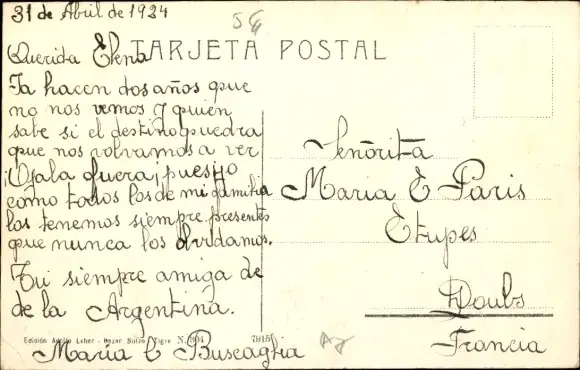 31 de Abril de 1924
54
Querida Elena
TARJETA POSTAL
Ya hacen dos años que
no nos vemos y quien
sabe si el destino quedra
que nos volvamos a ver
¡Ojala fuera! pues yo
como todos los de mi familia
los tenemos siempre presentes
que nunca los olvidamos.
Tu siempre amiga de
de la Argentina.
Maria E Buscaglia
Señorita
Maria E Paris
Etupes
Doubs
Francia
Edición Adolfo Leber - Bazar Suizo - Tigre N. 904
79151